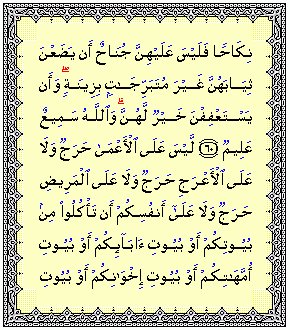 نِكَاحًا فَلَيْسَ عَلَيْهِنَّ جُنَاحٌ أَن يَضَعْنَ
ثِيَابَهُنَّ غَيْرَ مُتَبَرِّجَـٰتٍۭ بِزِينَةٍۖ وَأَن
يَسْتَعْفِفْنَ خَيْرٌ لَّهُنَّۗ وَٱللَّهُ سَمِيعٌ
عَلِيمٌ ٦٠ لَّيْسَ عَلَى ٱلْأَعْمَىٰ حَرَجٌ وَلَا
عَلَى ٱلْأَعْرَجِ حَرَجٌ وَلَا عَلَى ٱلْمَرِيضِ
حَرَجٌ وَلَا عَلَىٰٓ أَنفُسِكُمْ أَن تَأْكُلُوا۟ مِنۢ
بُيُوتِكُمْ أَوْ بُيُوتِ ءَابَآئِكُمْ أَوْ بُيُوتِ
أُمَّهَـٰتِكُمْ أَوْ بُيُوتِ إِخْوَٰنِكُمْ أَوْ بُيُوتِ